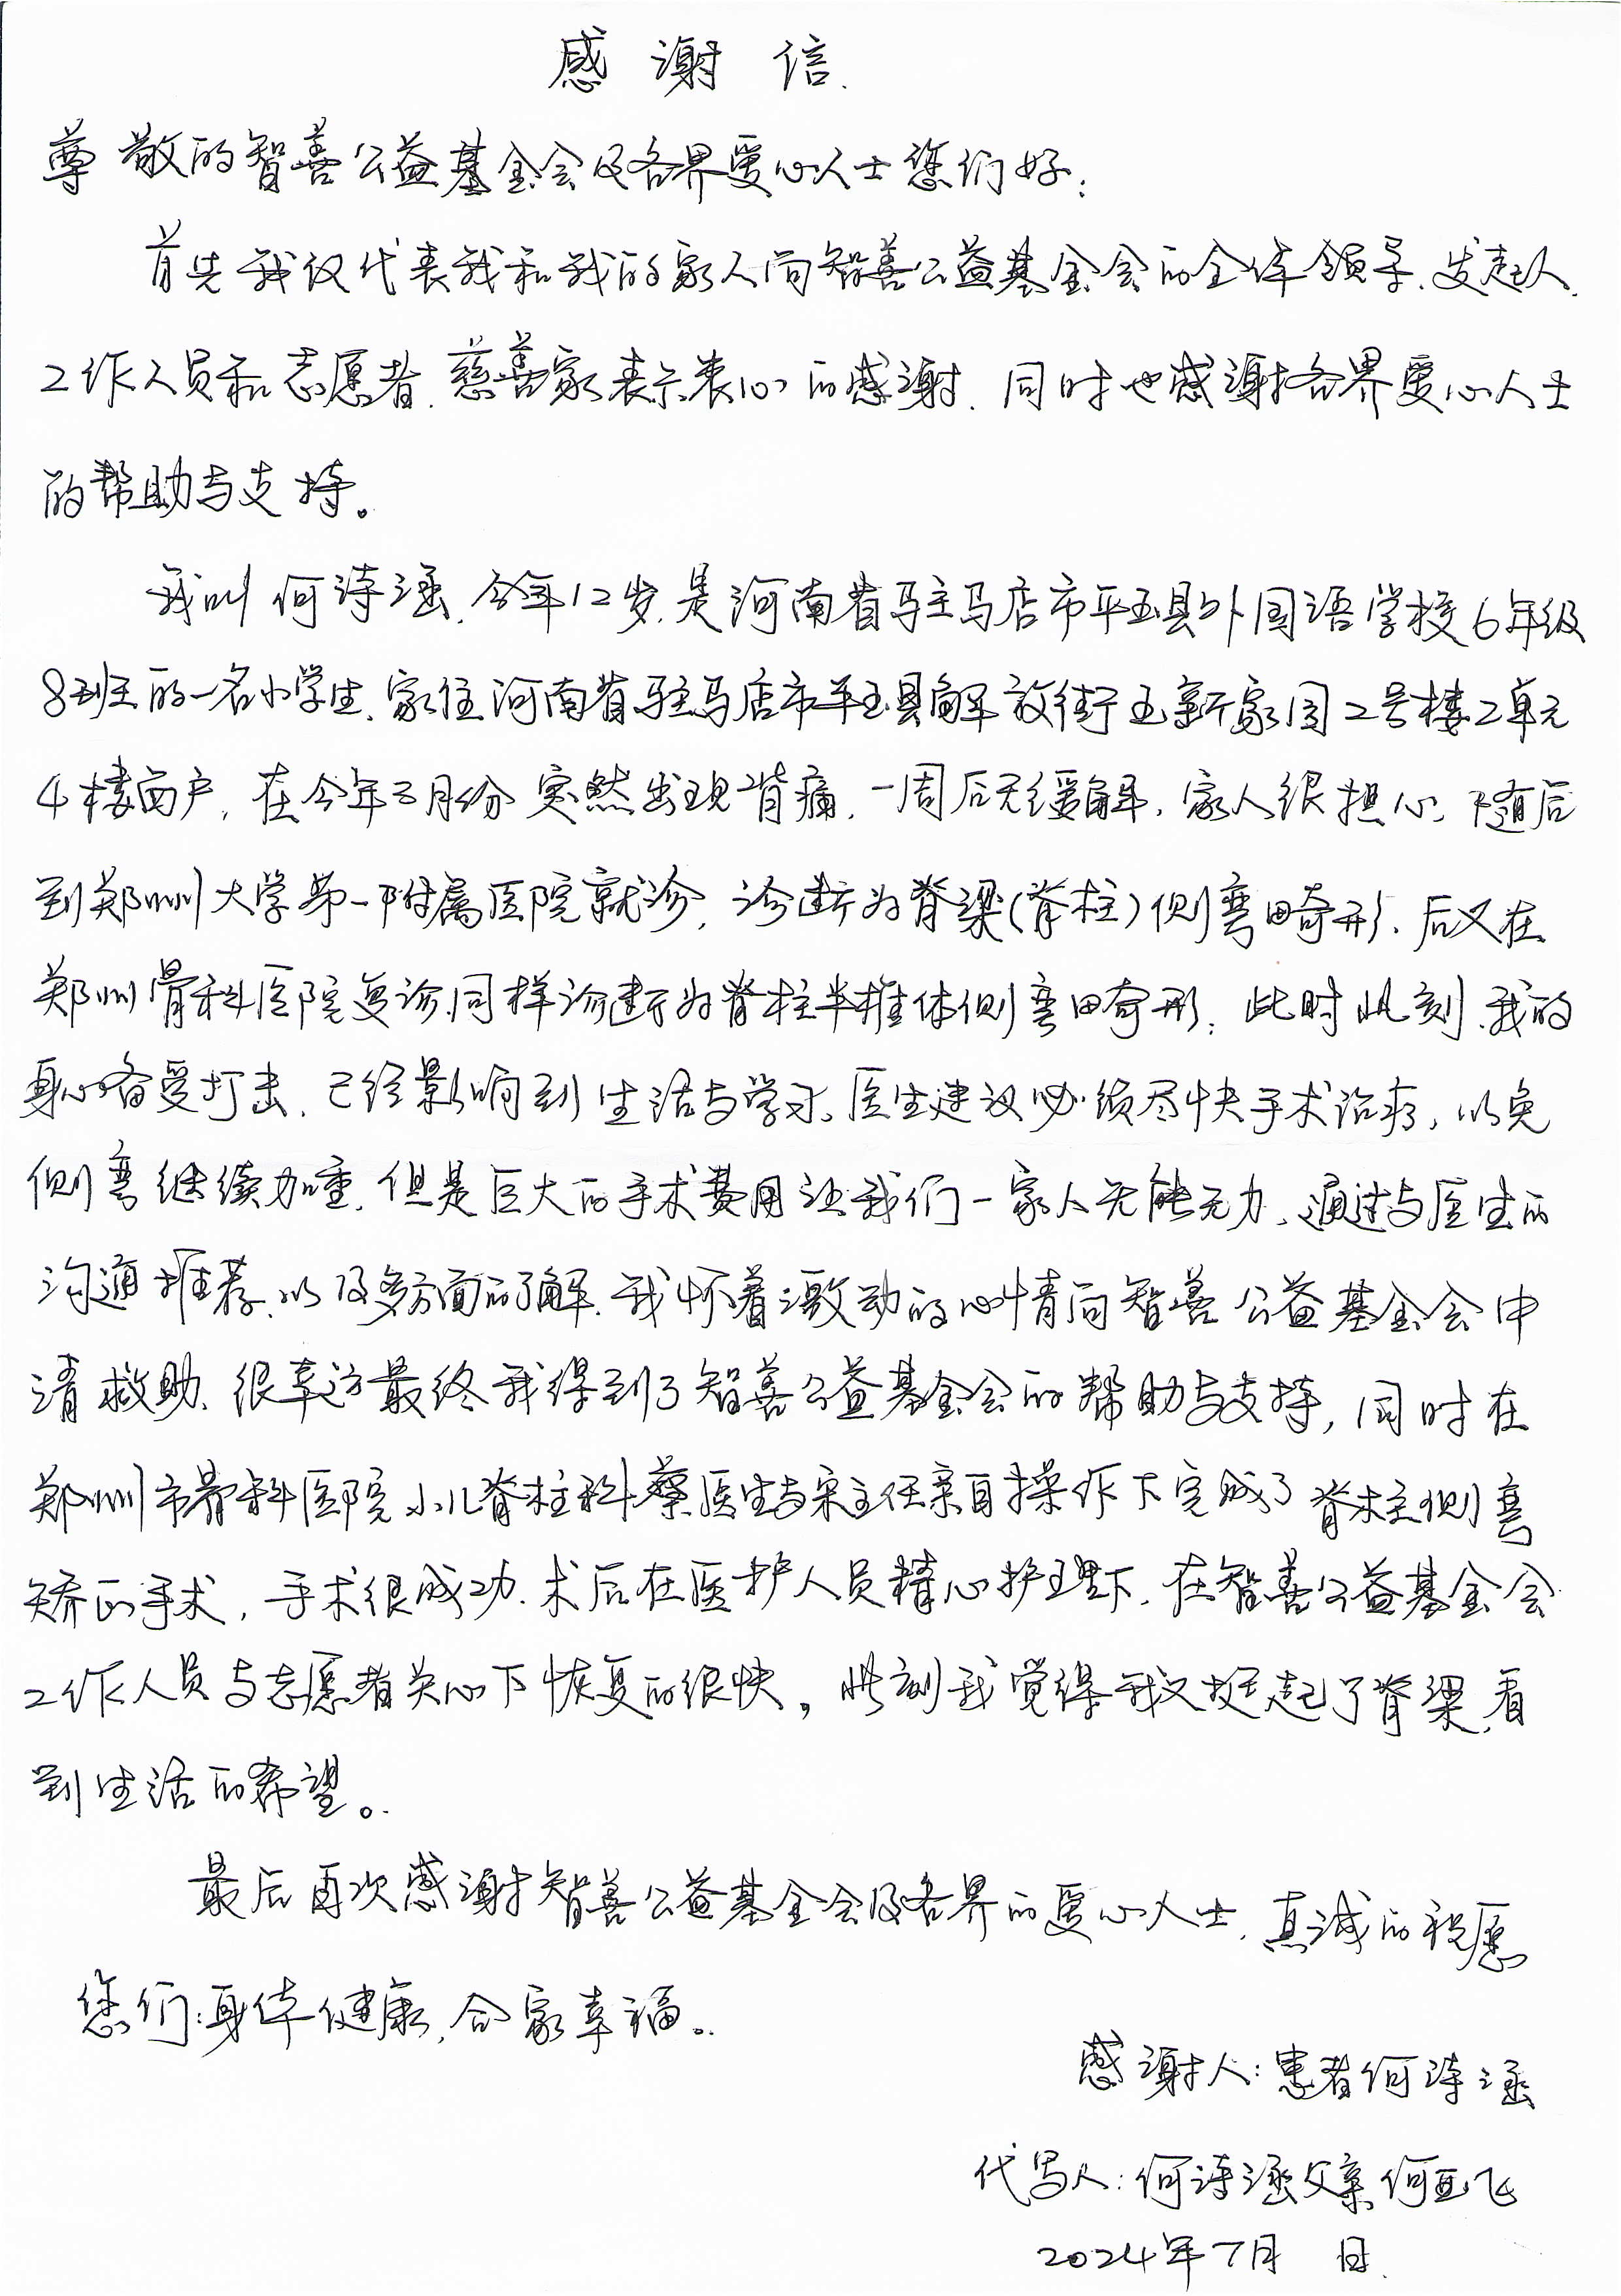 感谢信.
尊敬的智善公益基金会及各界爱心人士您们好:
首先我仅代表我和我的家人向智善公益基金会的全体领导、发起人、
工作人员和志愿者、慈善家表示衷心的感谢、同时也感谢各界爱心人士
的帮助与支持。
我叫何诗涵,今年12岁,是河南省驻马店市平玉县外国语学校6年级
8班的一名小学生、家住河南省驻马店市平玉县解放街玉新家园2号楼2单元
4楼西户,在今年3月份突然出现背痛,一周后无缓解,家人很担心,随后
到郑州大学第一附属医院就诊,诊断为脊梁(脊柱)侧弯畸形、后又在
郑州骨科医院复诊,同样诊断为脊柱半椎体侧弯畸形;此时此刻,我的
身心备受打击、已经影响到生活与学习、医生建议必须尽快手术治疗,以免
侧弯继续加重,但是巨大的手术费用让我们一家人无能无力、通过与医生的
沟通推荐、以及多方面的了解、我怀着激动的心情向智善公益基金会申
请救助、很幸运最终我得到了智善公益基金会的帮助与支持,同时在
郑州市骨科医院小儿脊柱科蔡医生与宋主任亲自操作下完成了脊柱侧弯
矫正手术,手术很成功、术后在医护人员精心护理下、在智善公益基金会
工作人员与志愿者关心下恢复的很快。此刻我觉得我又挺起了脊梁,看
到生活的希望。
最后再次感谢智善公益基金会及各界的爱心人士,真诚的祝愿
您们:身体健康,合家幸福。
感谢人:患者何诗涵
代写人:何诗涵父亲何亚飞
2024年7月 日